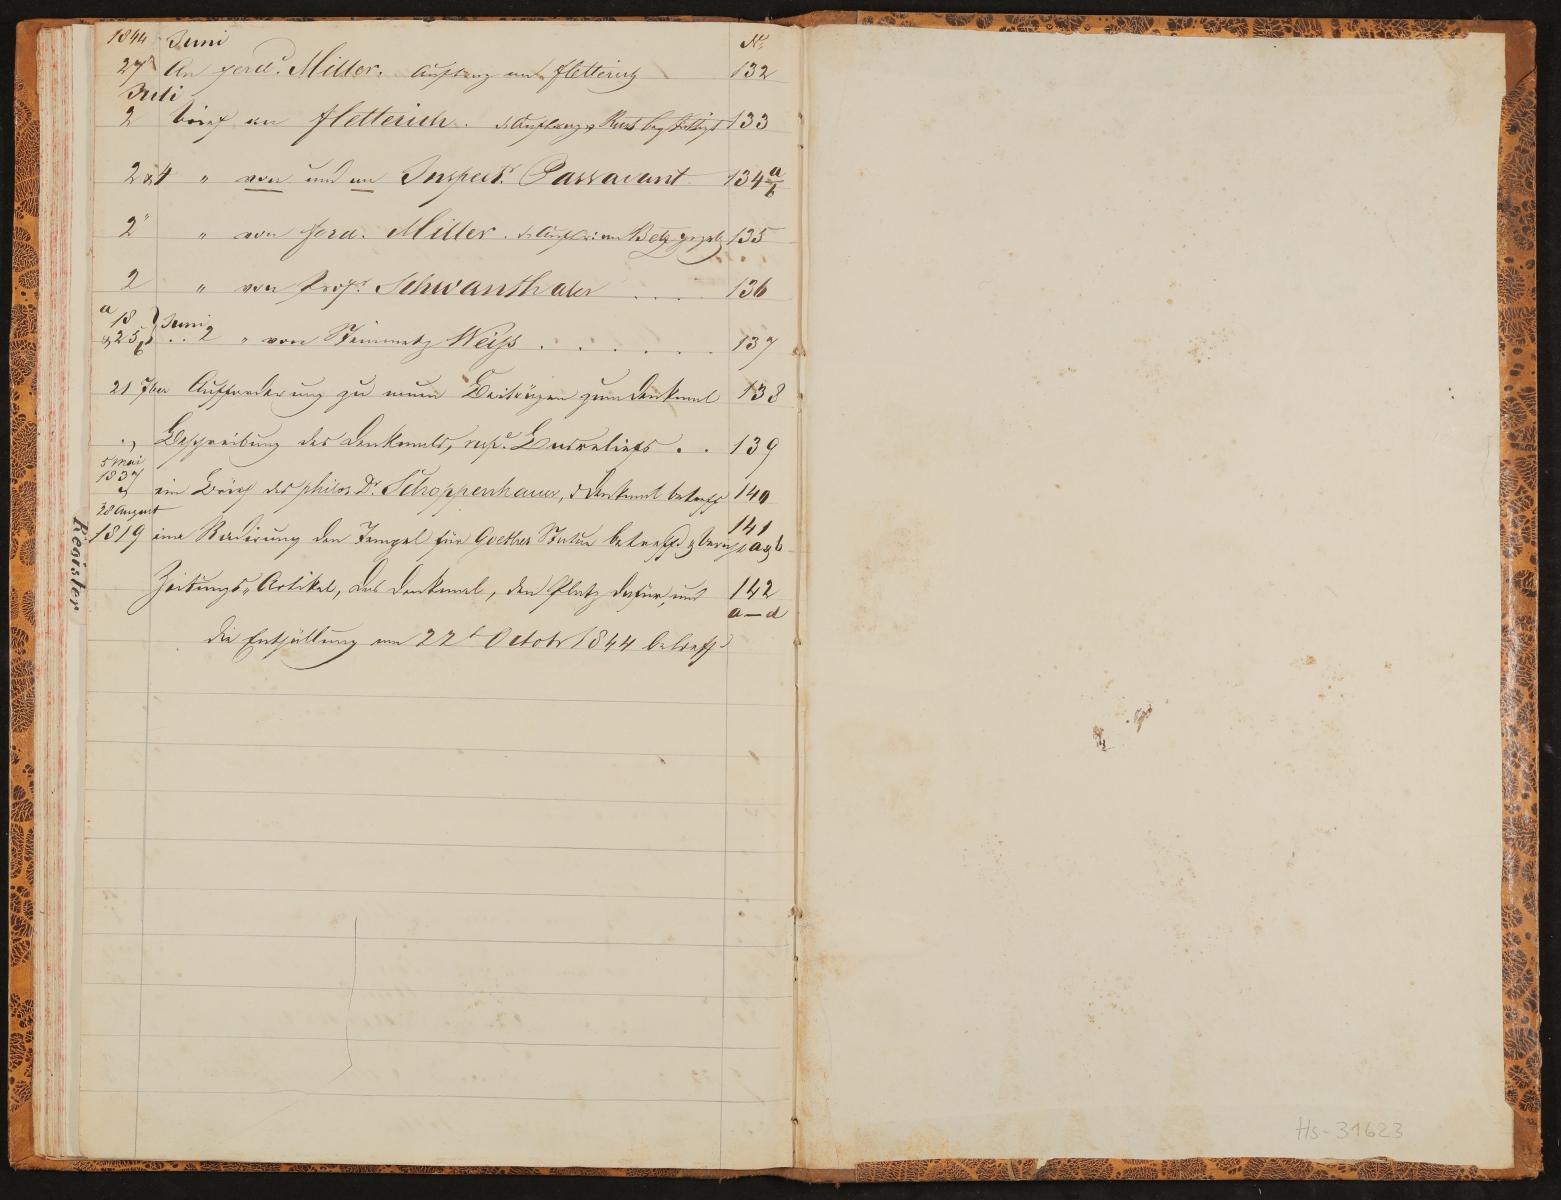 1844 Juni No.
27 An Ferd. Miller. 132
Juli
2 Brief an Hetterich. 133
2 & 4 " von und an Inspect. Passavant 134 a/b
2 " von Ferd. Miller. 135
2 " von Prof. Schwanthaler .... 136
a 18 Juni
& 25 b .. 2 " von Steinmetz Weiss . . . . . . . 137
21 7ber Aufforderung zu neuen Beiträgen zum Denkmal 138
" Beschreibung des Denkmals, resp. Basreliefs . . 139
5 Mai
1837 ein Brief des philos Dr. Schoppenhauer, d Denkmal betreff 140
28 August
1819 eine Radirung den Tempel für Goethes Statue betreffd 141 a & b
Zeitungs-Artikel, das Denkmal, den Platz dafür, und 142
a-d
die Enthüllung am 22t October 1844 betreffd
Register
Hs-31623